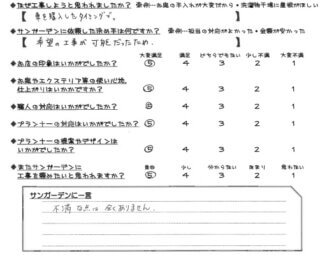 ◆なぜ工事しようと思われましたか？ 例→お庭の手入れが大変だから・洗濯物干場に屋根がほしい
【 車を購入したタイミングで。
◆サンガーデンに依頼した決め手は何ですか？ 例→担当の対応がよかった・金額が安かった
【 希望の工事が可能だったため。
大変満足 満足 どちらでもない 少し不満 大変不満
◆お庭の印象はいかがでしたか？ ⑤ 4 3 2 1
◆お庭やエクステリア等の使い心地、
仕上がりはいかがですか？ ⑤ 4 3 2 1
◆職人の対応はいかがでしたか？ ⑤ 4 3 2 1
◆プランナーの対応はいかがでしたか？ ⑤ 4 3 2 1
◆プランナーの提案やデザインは
いかがでしたか？ ⑤ 4 3 2 1
◆またサンガーデンに 少し 分からない あまり 思わない
工事を頼みたいと思われますか？ ⑤ 4 3 2 1
サンガーデンに一言
不満な点は全くありません。